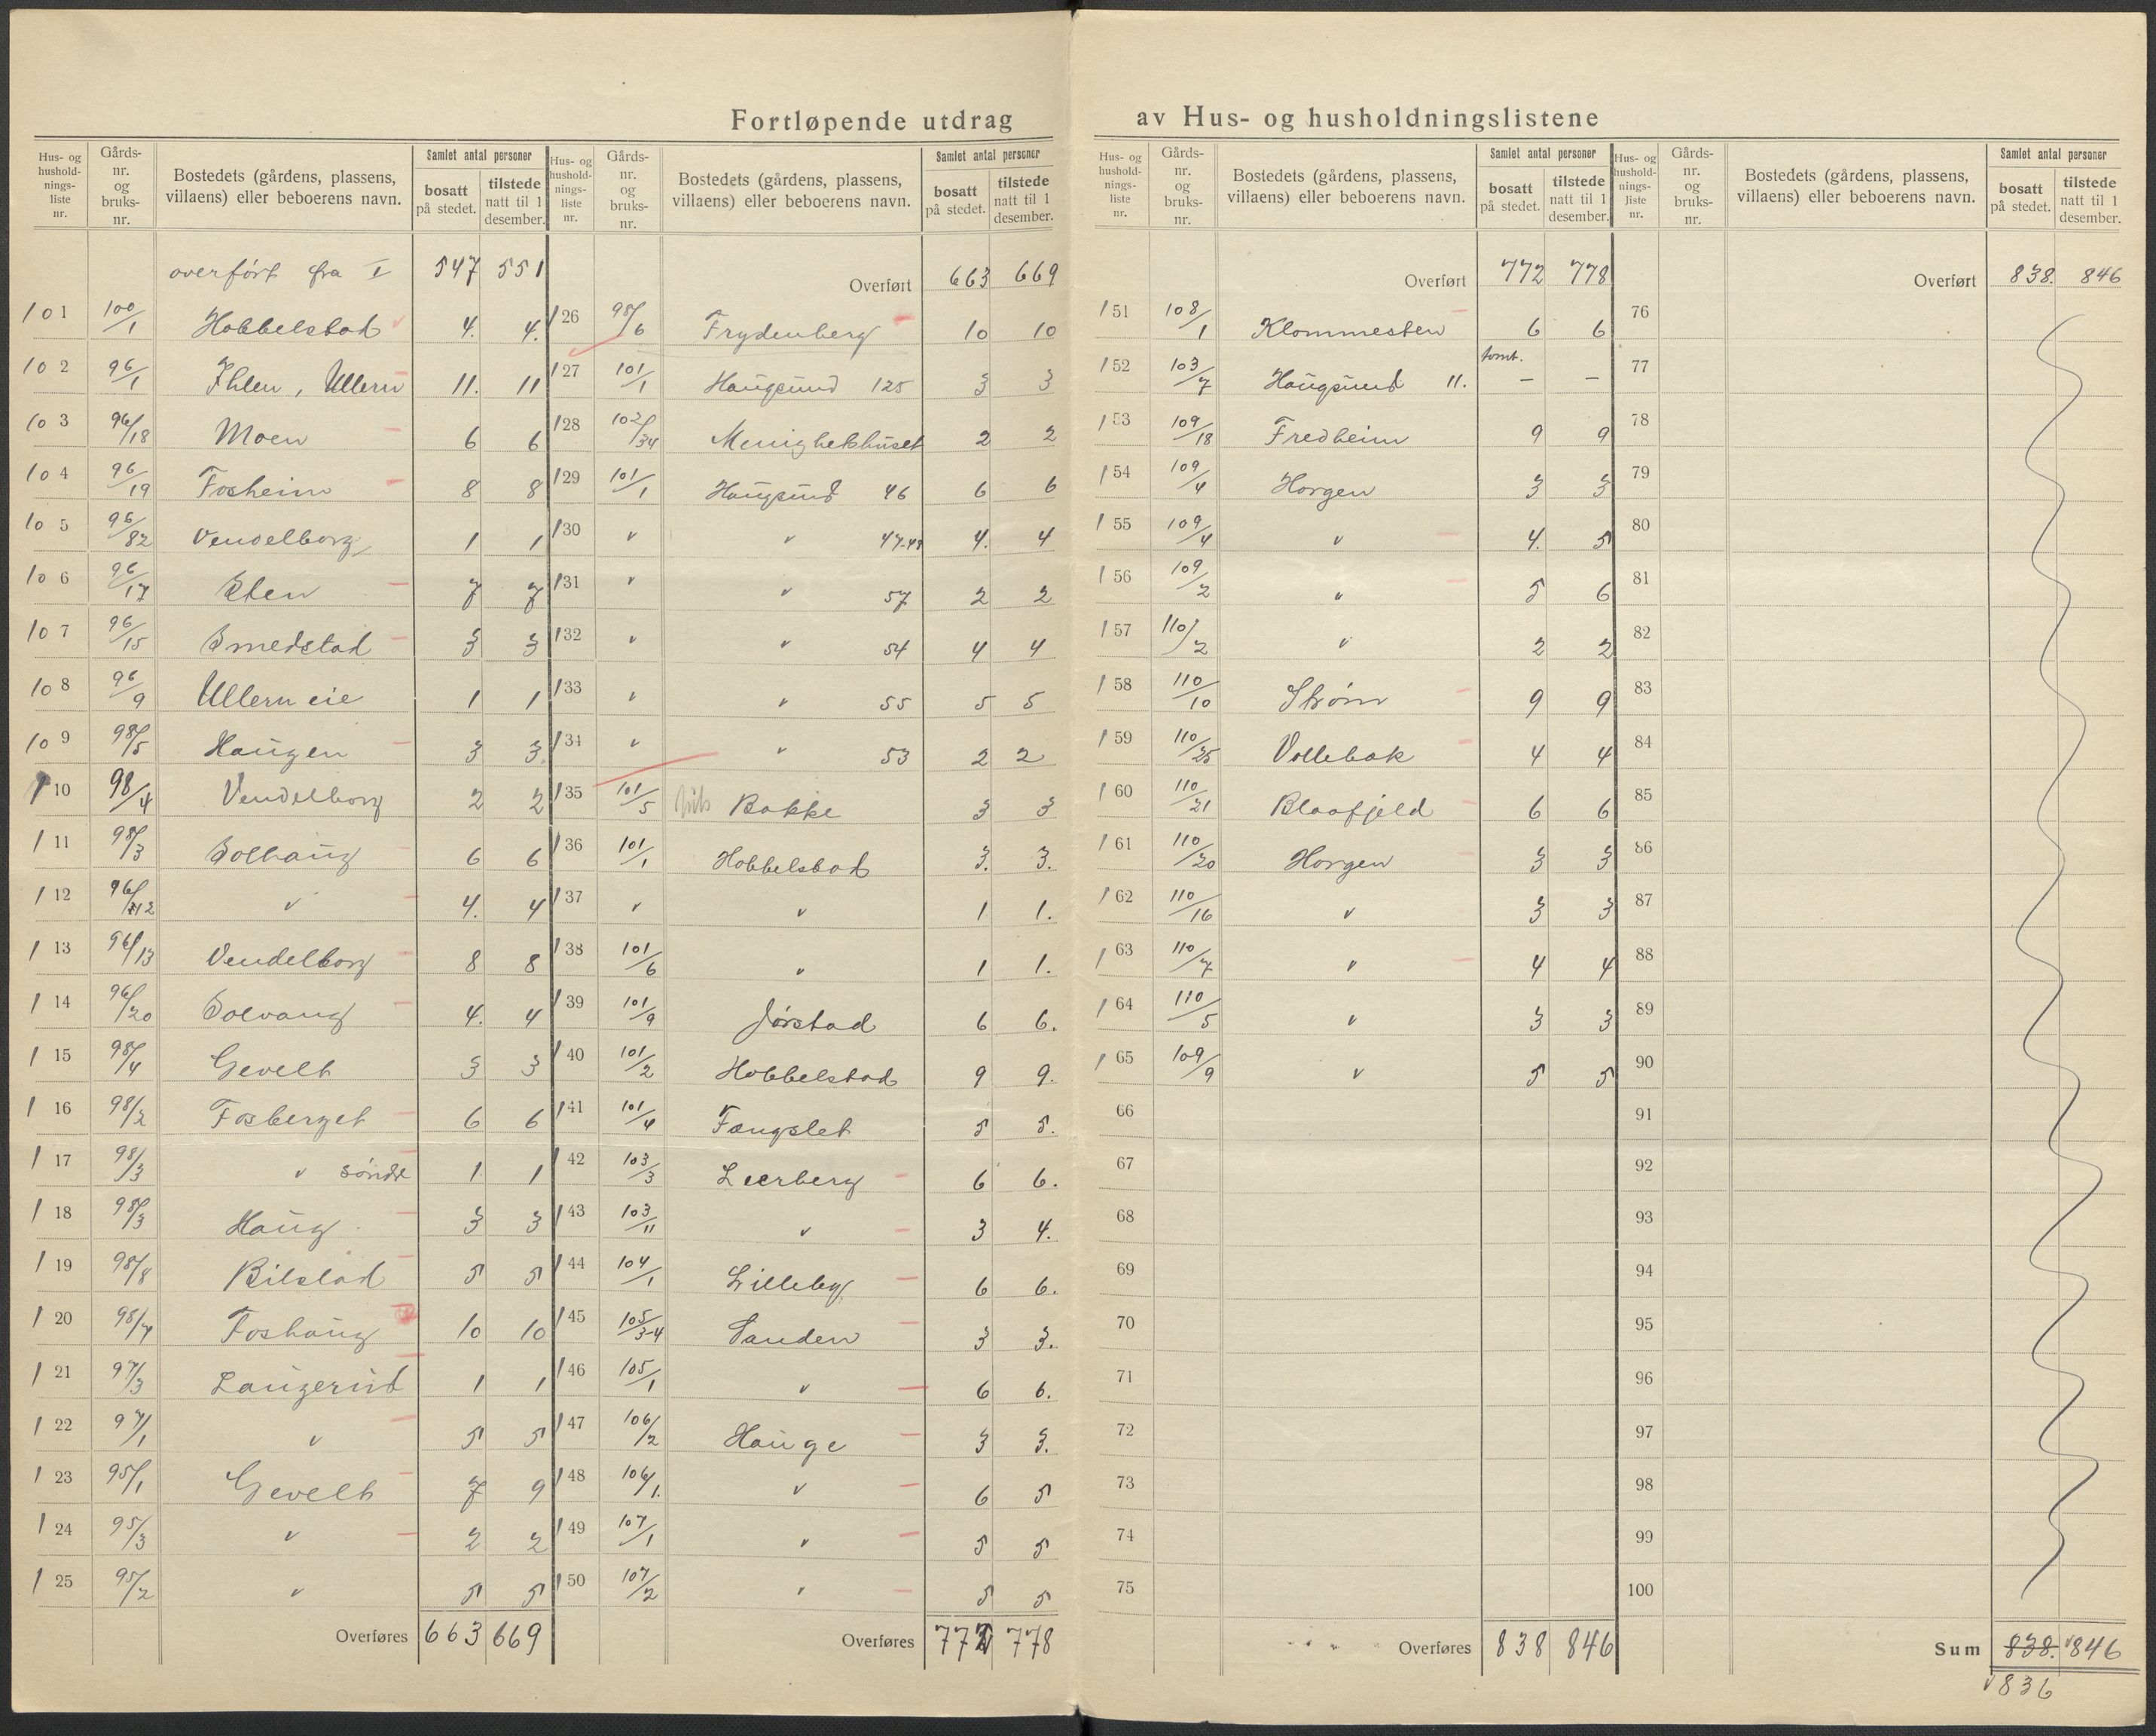 Fortløpende utdrag av Hus- og husholdningslistene
Hus- og hushold-nings-liste nr. Gårds-nr. og bruks-nr. Bostedets (gårdens, plassens, villaens) eller beboerens navn. Samlet antal personer bosatt på stedet. tilstede natt til 1 desember.
overført fra I 547 551
101 100/1 Hobbelstad 4. 4.
102 96/1 Ihlen, Ullern 11. 11
103 96/18 Moen 6 6
104 96/19 Fosheim 8 8
105 96/82 Vendelborg 1 1
106 96/17 Sten 7 7
107 96/15 Smedstad 3 3
108 96/9 Ullern eie 1 1
109 98/5 Haugen 3 3.
110 98/4 Vendelborg 2 2
111 98/3 Solhaug 6 6
112 96/12 " 4. 4
113 96/13 Vendelborg 8 8
114 96/20 Solvang 4. 4
115 98/4 Gevelt 3 3
116 98/2 Fosberget 6 6
117 98/3 " søndre 1 1
118 98/3 Haug 3 3
119 98/8 Bilstad 5 5
120 98/7 Foshaug 10 10
121 97/3 Langerud 1 1
122 97/1 " 5 5
123 95/1 Gevelt 7 9
124 95/3 " 2 2
125 95/2 " 5 5
Overføres 663 669
Hus- og hushold-nings-liste nr. Gårds-nr. og bruks-nr. Bostedets (gårdens, plassens, villaens) eller beboerens navn. Samlet antal personer bosatt på stedet. tilstede natt til 1 desember.
Overført 663 669
126 98/6 Frydenberg 10 10
127 101/1 Haugsund 125 3 3
128 102/34 Menighetshuset 2 2
129 101/1 Haugsund 46 6 6
130 " " 47-48 4. 4
131 " " 57 2 2
132 " " 54 4 4
133 " " 55 5 5
134 " " 53 2 2
135 101/5 Bakke 3 3
136 101/1 Hobbelstad 3. 3.
137 " " 1 1.
138 101/6 " 1 1.
139 101/9 Jørstad 6 6.
140 101/2 Hobbelstad 9 9.
141 101/4 Fangslet 5 5.
142 103/3 Leerberg 6 6.
143 103/11 " 3 4.
144 104/1 Lilleby 6 6.
145 105/3-4 Sanden 3 3.
146 105/1 " 6 6.
147 106/2 Hauge 3 3.
148 106/1. " 6 5
149 107/1 " 5 5
150 107/2 " 5 5
Overføres 772 778
Hus- og hushold-nings-liste nr. Gårds-nr. og bruks-nr. Bostedets (gårdens, plassens, villaens) eller beboerens navn. Samlet antal personer bosatt på stedet. tilstede natt til 1 desember.
Overført 772 778
151 108/1 Klommesten 6 6
152 103/7 Haugsund 11. tomt. — —
153 109/18 Fredheim 9 9
154 109/4 Horgen 3 3
155 109/4 " 4. 5
156 109/2 " 5 6
157 110/2 " 2 2
158 110/10 Strøm 9 9
159 110/25 Vollebak 4 4
160 110/21 Blaafjeld 6 6
161 110/20 Horgen 3 3
162 110/16 " 3 3
163 110/7 " 4 4
164 110/5 " 3 3
165 109/9 " 5 5
66
67
68
69
70
71
72
73
74
75
Overføres 838 846
Hus- og hushold-nings-liste nr. Gårds-nr. og bruks-nr. Bostedets (gårdens, plassens, villaens) eller beboerens navn. Samlet antal personer bosatt på stedet. tilstede natt til 1 desember.
Overført 838. 846
76
77
78
79
80
81
82
83
84
85
86
87
88
89
90
91
92
93
94
95
96
97
98
99
100
Sum 838. 846
836